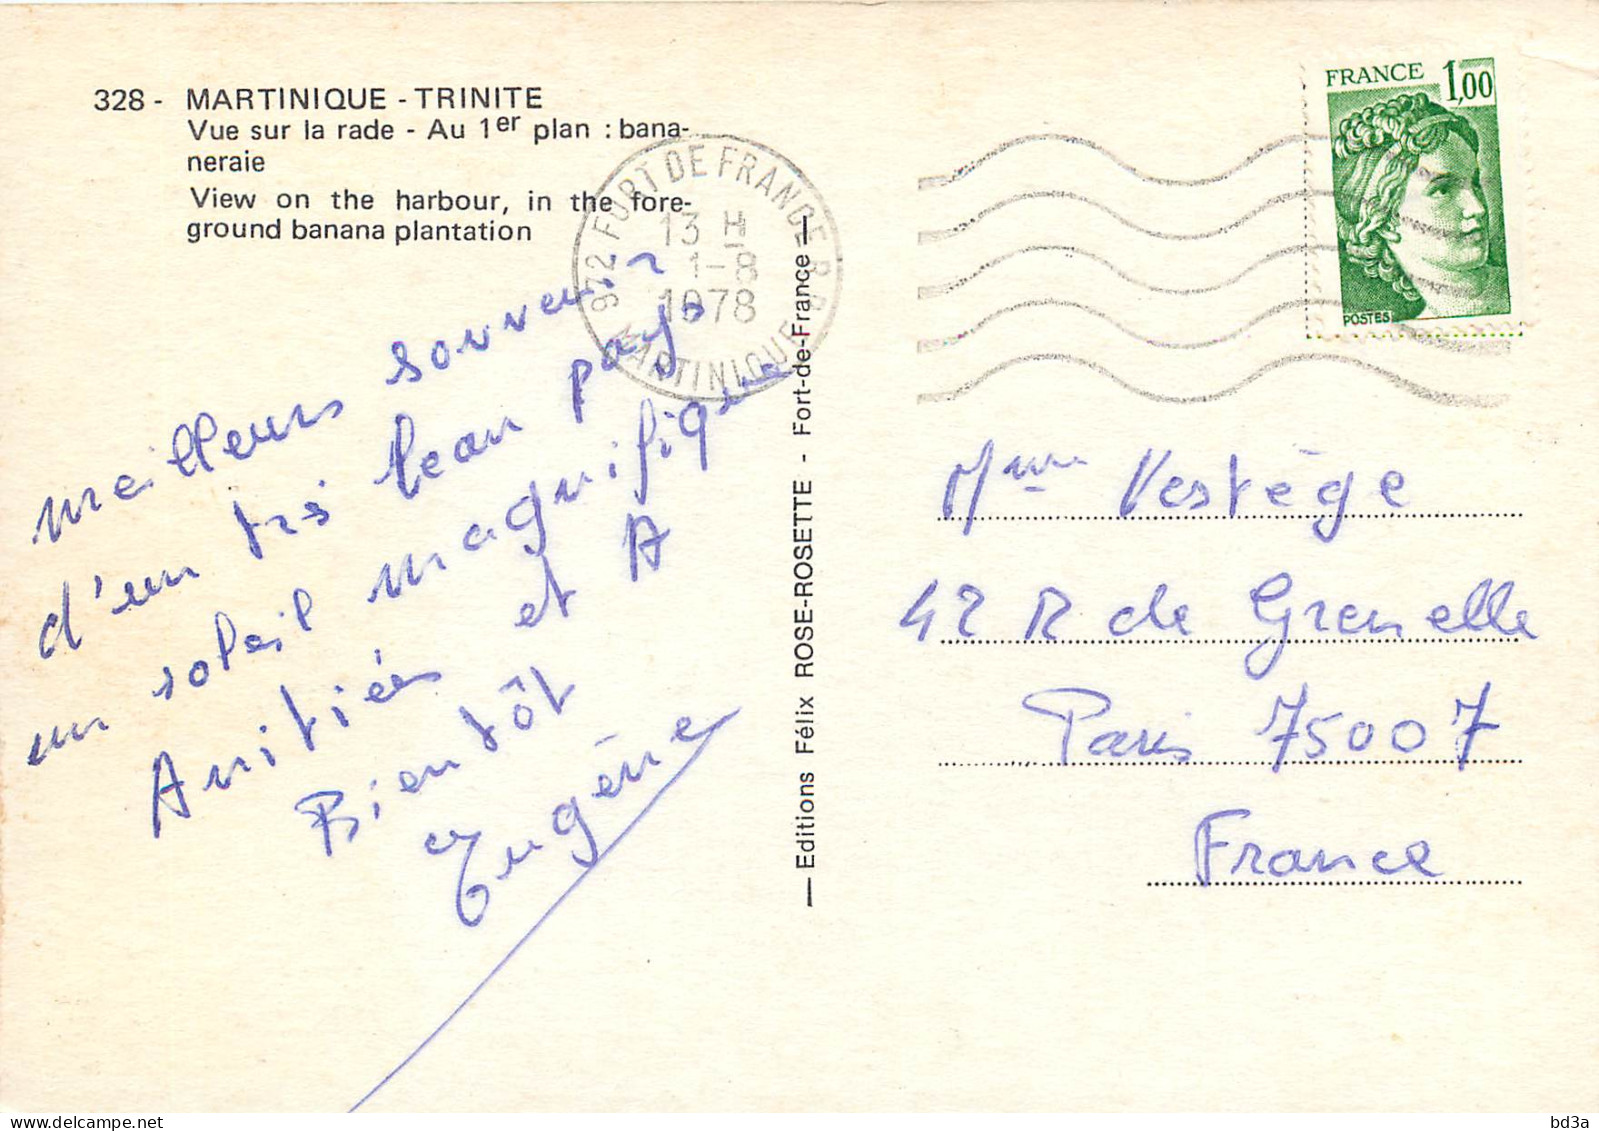 328 - MARTINIQUE - TRINITE
Vue sur la rade - Au 1er plan : bana-
neraie
View on the harbour, in the fore-
ground banana plantation
972 FORT DE FRANCE R.P.
13 H
1-8
1978
MARTINIQUE
FRANCE 1,00
POSTES
meilleurs souvenir
d'un très beau pays
un soleil magnifique
Amitiés et A
Bientôt
Eugène
— Editions Félix ROSE-ROSETTE - Fort-de-France —
Mme Vestège
42 R de Grenelle
Paris 75007
France
bd3a